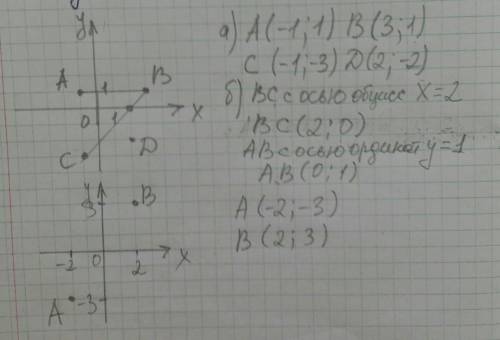 y
A 1 B
0 1 X
C D
y
3 B
-2 0 2 X
A -3
а) A(-1;1) B(3;1)
C (-1;-3) D(2;-2)
б) BC с осью абцисс X=2
BC (2;0)
AB с осью ординат y=1
AB (0;1)
A (-2;-3)
B (2;3)